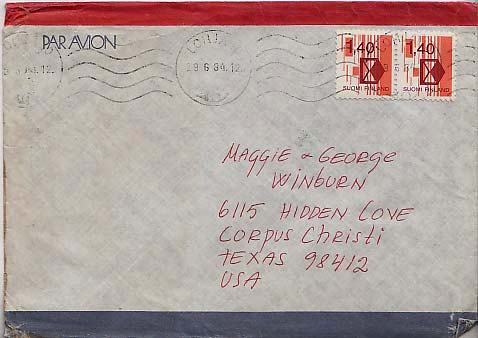 PAR AVION
29.6.84.12
1.40 1.40
SUOMI FINLAND SUOMI FINLAND
MAGGIE & GEORGE
WINBURN
6115 HIDDEN COVE
CORPUS CHRISTI
TEXAS 98412
USA